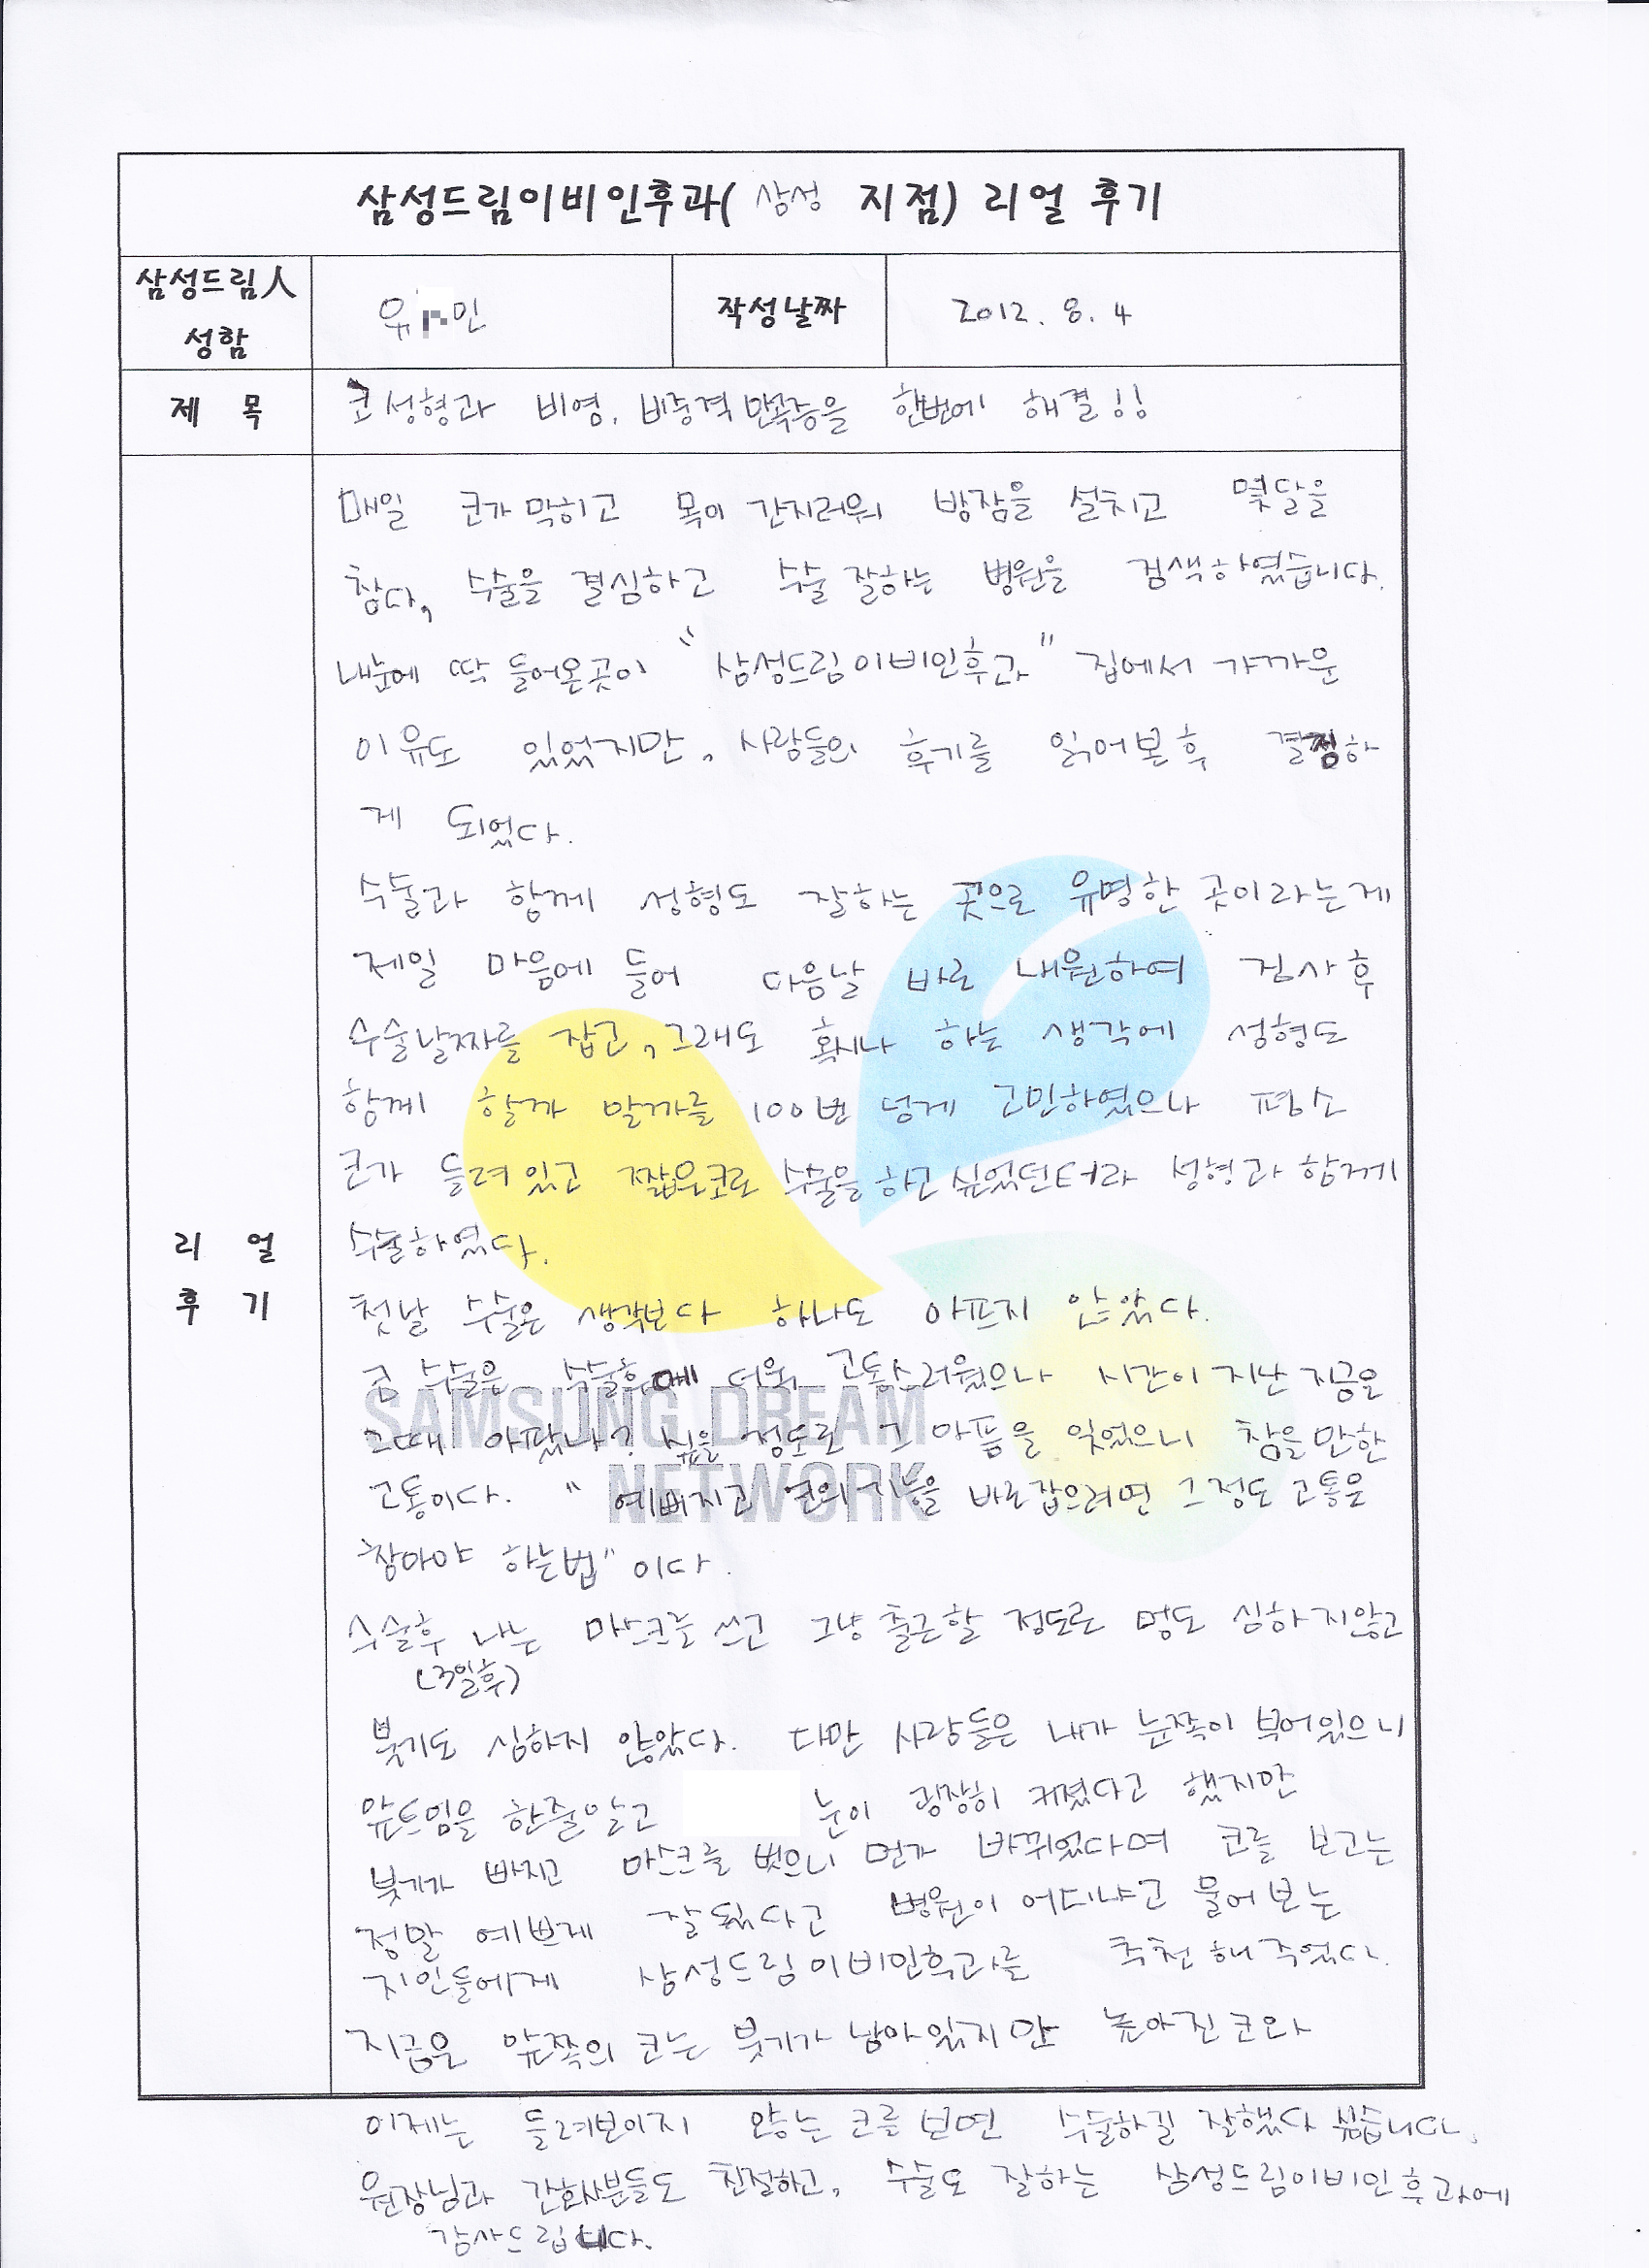 삼성드림이비인후과( 삼성 지점) 리얼 후기
삼성드림人 성함
유 민
작성날짜
2012. 8. 4
제 목
코성형과 비염, 비중격만곡증을 한번에 해결!!
리 얼 후 기
매일 코가 막히고 목이 간지러워 밤잠을 설치고 몇달을
참다, 수술을 결심하고 수술 잘하는 병원을 검색하였습니다.
내눈에 딱 들어온곳이 "삼성드림이비인후과" 집에서 가까운
이유도 있었지만, 사람들의 후기를 읽어본후 결정하
게 되었다.
수술과 함께 성형도 잘하는 곳으로 유명한 곳이라는게
제일 마음에 들어 다음날 바로 내원하여 검사후
수술날짜를 잡고, 그래도 혹시나 하는 생각에 성형도
함께 할까 말까를 100번 넘게 고민하였으나 평소
코가 들려있고 짧은코로 수술을하고싶었던터라 성형과 함께
수술하였다.
첫날 수술은 생각보다 하나도 아프지 않았다.
코 수술은 수술후에 더욱 고통스러웠으나 시간이 지난 지금은
그때 아팠나? 싶을 정도로 그 아픔을 잊었으니 참을만한
고통이다. " 예뻐지고 코의 기능을 바로잡으려면 그정도 고통은
참아야 하는법" 이다.
수술후 나는 마스크를 쓰고 그냥 출근할 정도로 멍도 심하지않고
(3일후)
붓기도 심하지 않았다. 다만 사람들은 내가 눈쪽이 부어있으니
앞트임을 한줄알고 눈이 굉장히 커졌다고 했지만
붓기가 빠지고 마스크를 벗으니 먼가 바뀌었다며 코를 보고는
정말 예쁘게 잘됬다고 병원이 어디냐고 물어보는
지인들에게 삼성드림이비인후과를 추천해주었다.
지금은 앞쪽의 코는 붓기가 남아있지만 높아진코와
이제는 들려보이지 않는 코를 보면 수술하길 잘했다 싶습니다.
원장님과 간호사분들도 친절하고, 수술도 잘하는 삼성드림이비인후과에
감사드립니다.
SAMSUNG DREAM
NETWORK